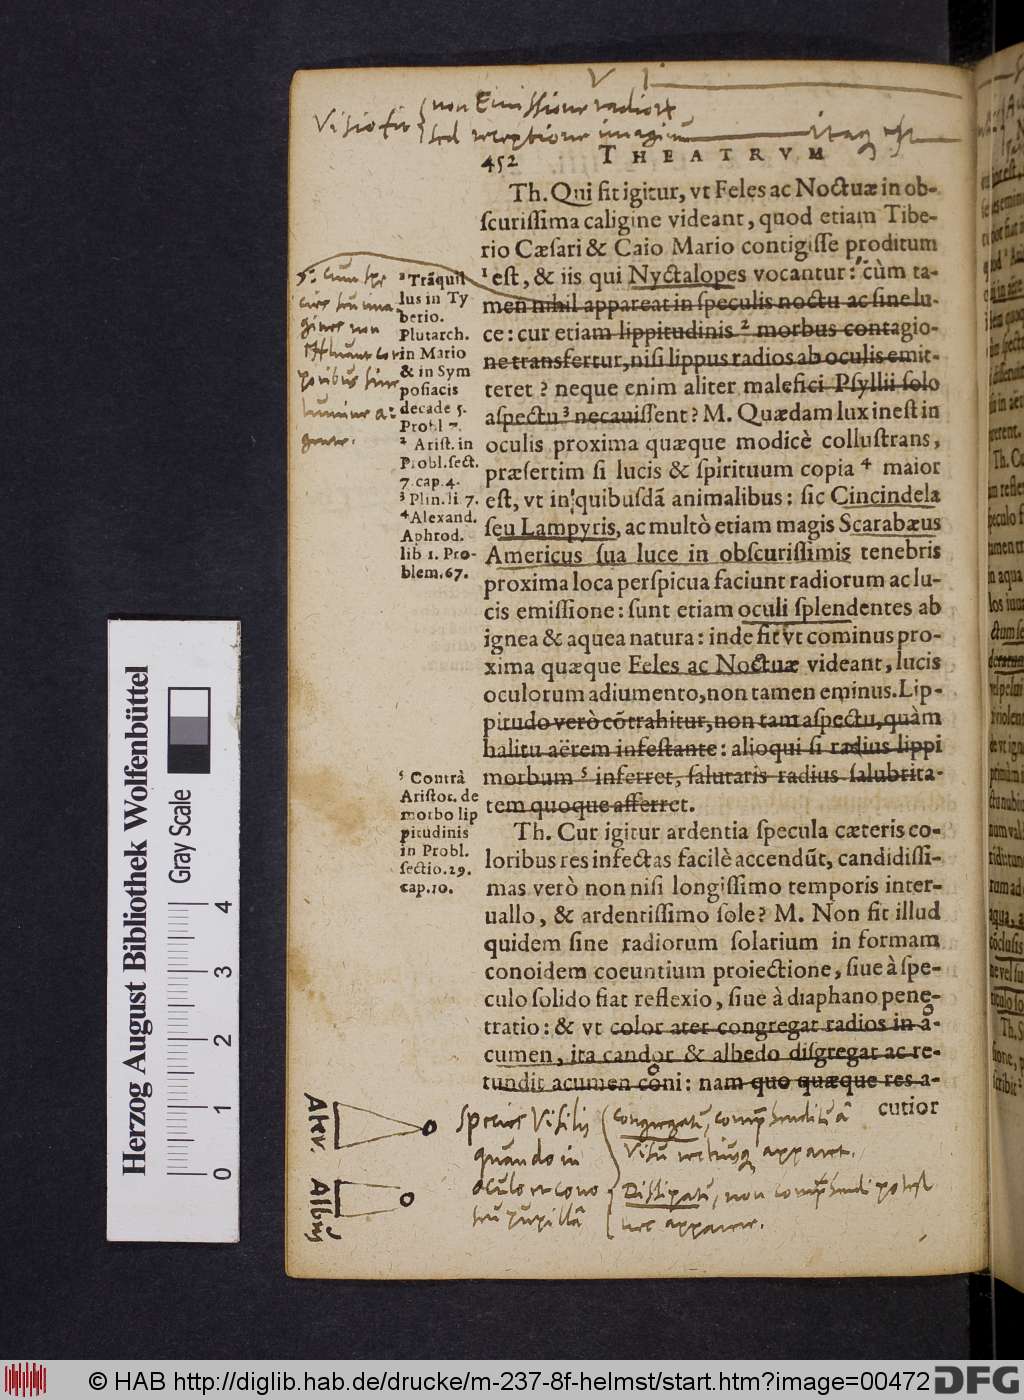 V I
Visio fit non Emissione radiorū
sed receptione imaginū itaq est
452 THEATRVM
Th. Qui fit igitur, vt Feles ac Noctuæ in ob-
scurissima caligine videant, quod etiam Tibe-
rio Cæsari & Caio Mario contigisse proditum
¹ est, & iis qui Nyctalopes vocantur: cùm ta-
men nihil appareat in speculis noctu ac sine lu-
ce: cur etiam lippitudinis ² morbus contagio-
ne transfertur, nisi lippus radios ab oculis emit-
teret? neque enim aliter malefici Psyllii solo
aspectu ³ necauissent? M. Quædam lux inest in
oculis proxima quæque modicè collustrans,
præsertim si lucis & spirituum copia ⁴ maior
est, vt in quibusdã animalibus: sic Cincindela
seu Lampyris, ac multò etiam magis Scarabæus
Americus sua luce in obscurissimis tenebris
proxima loca perspicua faciunt radiorum ac lu-
cis emissione: sunt etiam oculi splendentes ab
ignea & aquea natura: inde fit vt cominus pro-
xima quæque Feles ac Noctuæ videant, lucis
oculorum adiumento, non tamen eminus. Lip-
pitudo verò cõtrahitur, non tam aspectu, quàm
halitu aërem infestante: alioqui si radius lippi
morbum ⁵ inferret, salutaris radius salubrita-
tem quoque afferret.
Th. Cur igitur ardentia specula cæteris co-
loribus res infectas facilè accendũt, candidissi-
mas verò non nisi longissimo temporis inter-
uallo, & ardentissimo sole? M. Non fit illud
quidem sine radiorum solarium in formam
conoidem coeuntium proiectione, siue à spe-
culo solido fiat reflexio, siue à diaphano pene-
tratio: & vt color ater congregat radios in a-
cumen, ita candor & albedo disgregat ac re-
tundit acumen coni: nam quo quæque res a-
cutior
¹ Trãquil
lus in Ty
berio.
Plutarch.
in Mario
& in Sym
posiacis
decade 5.
Probl 7.
² Arist. in
Probl. sect.
7. cap. 4.
³ Plin. li 7.
⁴ Alexand.
Aphrod.
lib 1. Pro-
blem. 67.
⁵ Contrà
Aristot. de
morbo lip
pitudinis
in Probl.
sectio. 29.
cap. 10.
cum spe
cies seu ima
gines non
corporibus sine
lumine
Ater.
Albus
species Visilis
quando in
oculo et cono
seu pupillâ
congregatũ, comp̃hendit̃ â
Visu rectiusq apparet.
Dissipatũ, non comp̃hendi potest
nec apparere.
Herzog August Bibliothek Wolfenbüttel
Gray Scale
0 1 2 3 4
© HAB http://diglib.hab.de/drucke/m-237-8f-helmst/start.htm?image=00472
DFG